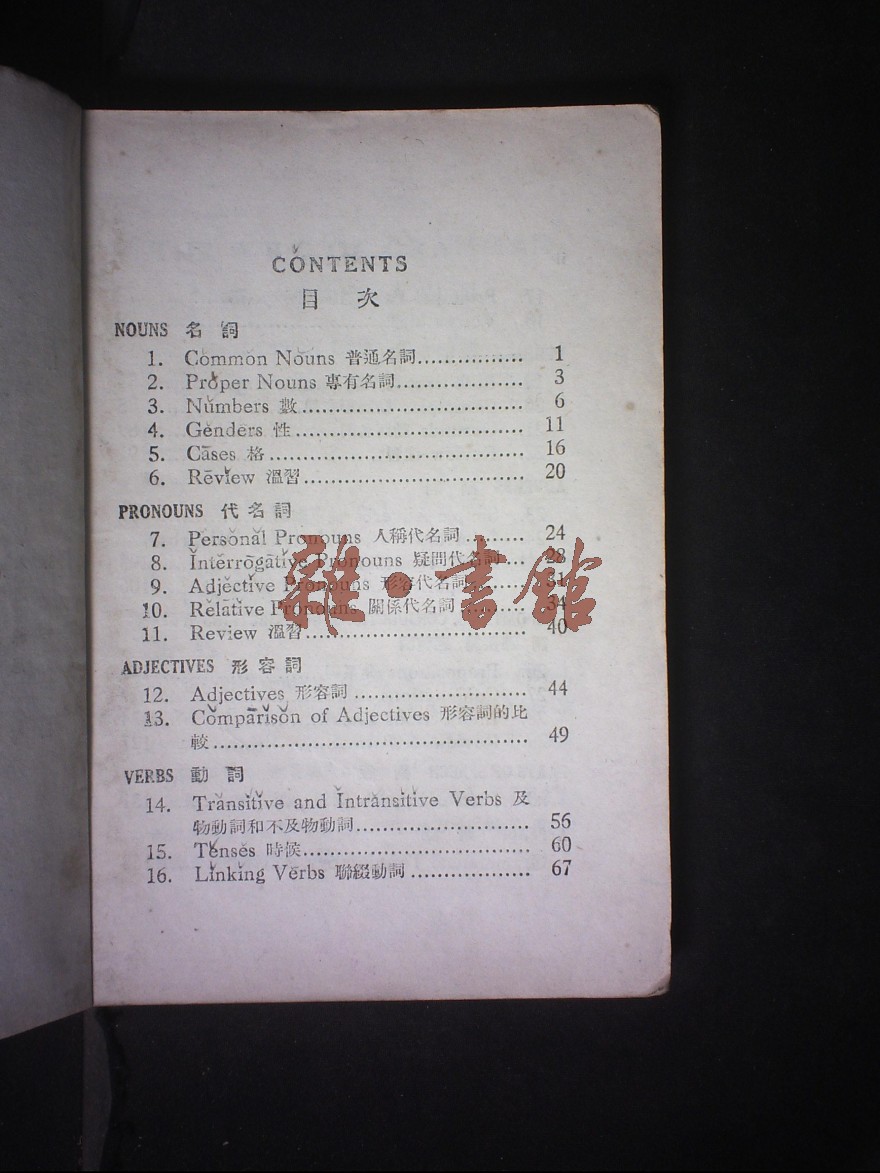 CONTENTS
目 次
NOUNS 名 詞
1. Common Nouns 普通名詞................ 1
2. Proper Nouns 專有名詞................... 3
3. Numbers 數................................. 6
4. Genders 性.................................. 11
5. Cases 格...................................... 16
6. Review 溫習................................. 20
PRONOUNS 代名詞
7. Personal Pronouns 人稱代名詞......... 24
8. Interrogative Pronouns 疑問代名詞... 28
9. Adjective Pronouns 形容代名詞......... 31
10. Relative Pronouns 關係代名詞......... 34
11. Review 溫習................................. 40
ADJECTIVES 形容詞
12. Adjectives 形容詞.......................... 44
13. Comparison of Adjectives 形容詞的比
較................................................ 49
VERBS 動 詞
14. Transitive and Intransitive Verbs 及
物動詞和不及物動詞.......................... 56
15. Tenses 時候.................................. 60
16. Linking Verbs 聯綴動詞.................. 67
雜·書館